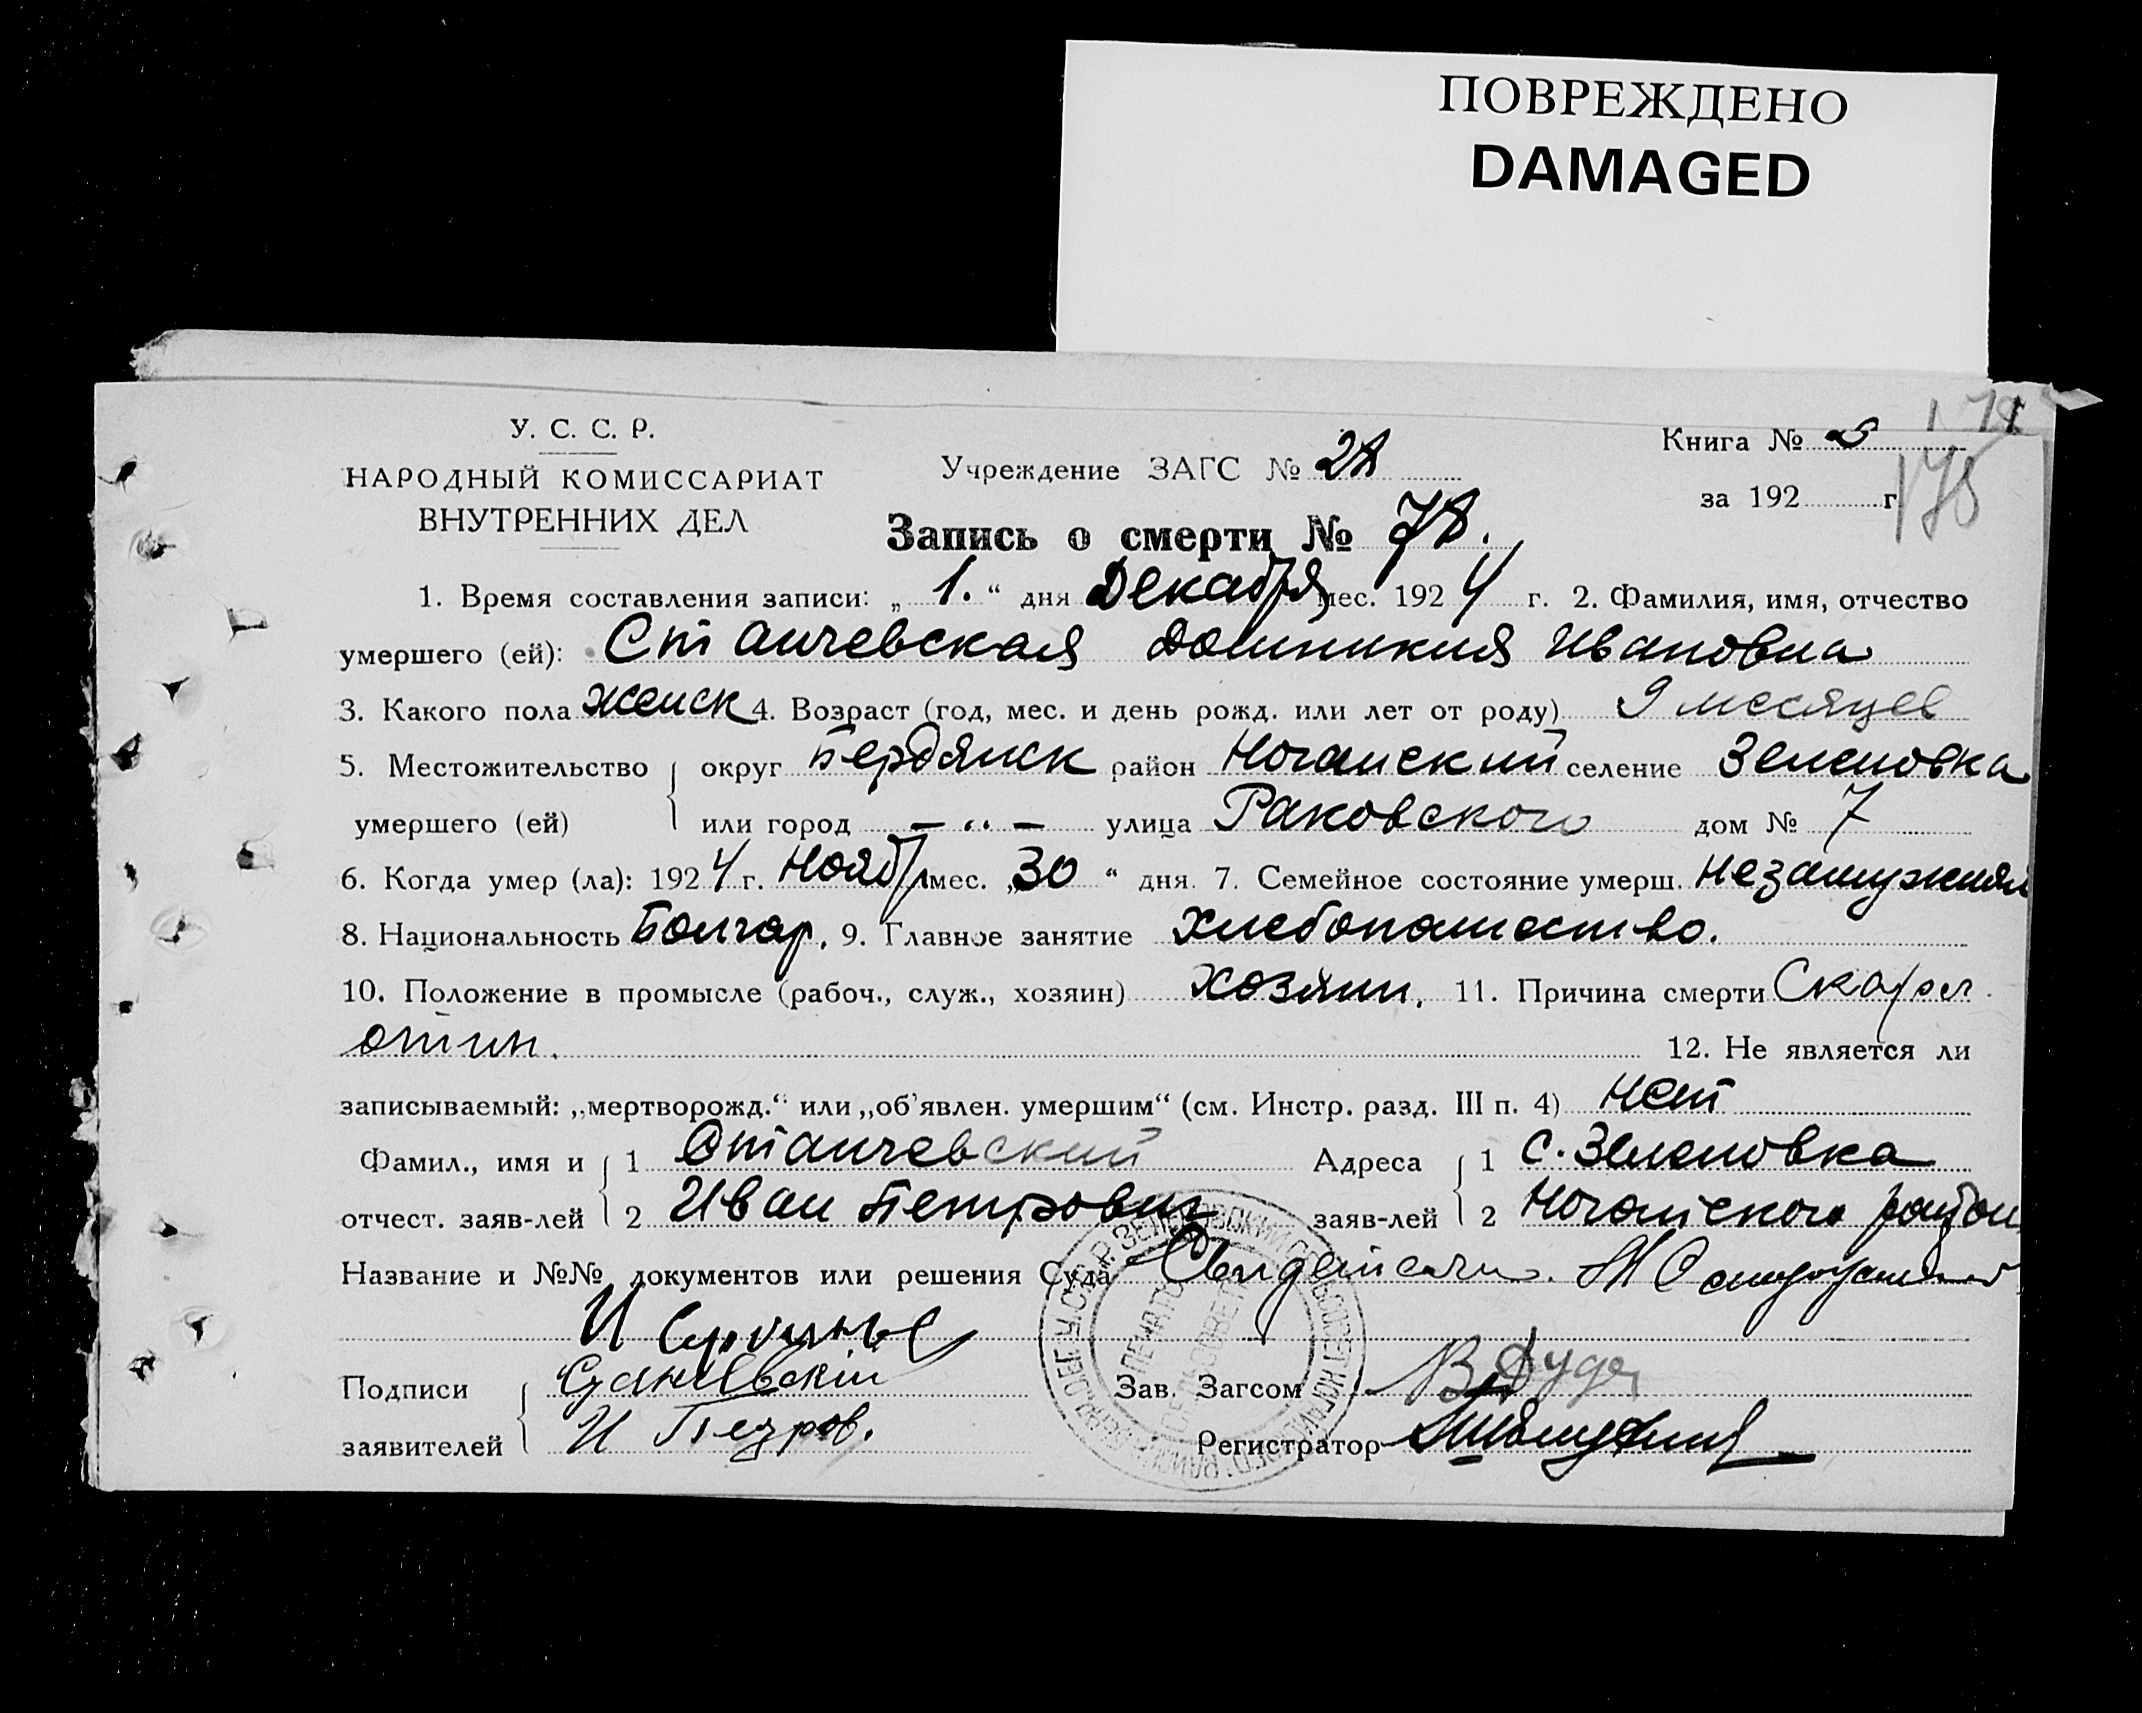 ПОВРЕЖДЕНО
DAMAGED
У. С. С. Р.
НАРОДНЫЙ КОМИССАРИАТ
ВНУТРЕННИХ ДЕЛ
Учреждение ЗАГС № 28
Книга №
178
за 192 г.
Запись о смерти № 78.
1. Время составления записи: „1.“ дня Декабря мес. 1924 г. 2. Фамилия, имя, отчество
умершего (ей): Станчевская Домникия Ивановна
3. Какого пола женск 4. Возраст (год, мес. и день рожд. или лет от роду) 9 месяцев
5. Местожительство округ Бердянск район Ногайский селение Зеленовка
умершего (ей) или город — „ — улица Раковского дом № 7
6. Когда умер (ла): 1924 г. Ноябр мес. „30“ дня. 7. Семейное состояние умерш. незамужняя
8. Национальность Болгар. 9. Главное занятие Хлебопашество.
10. Положение в промысле (рабоч., служ., хозяин) хозяин. 11. Причина смерти Скарл
атин. 12. Не является ли
записываемый: „мертворожд.“ или „об'явлен. умершим“ (см. Инстр. разд. III п. 4) нет
Фамил., имя и 1 Станчевский Адреса 1 с. Зеленовка
отчест. заяв-лей 2 Иван Петрович заяв-лей 2 Ногайского район
Название и №№ документов или решения Суда Свидетели.
И
Подписи
заявителей И Петров.
Зав. Загсом В Дуда
Регистратор